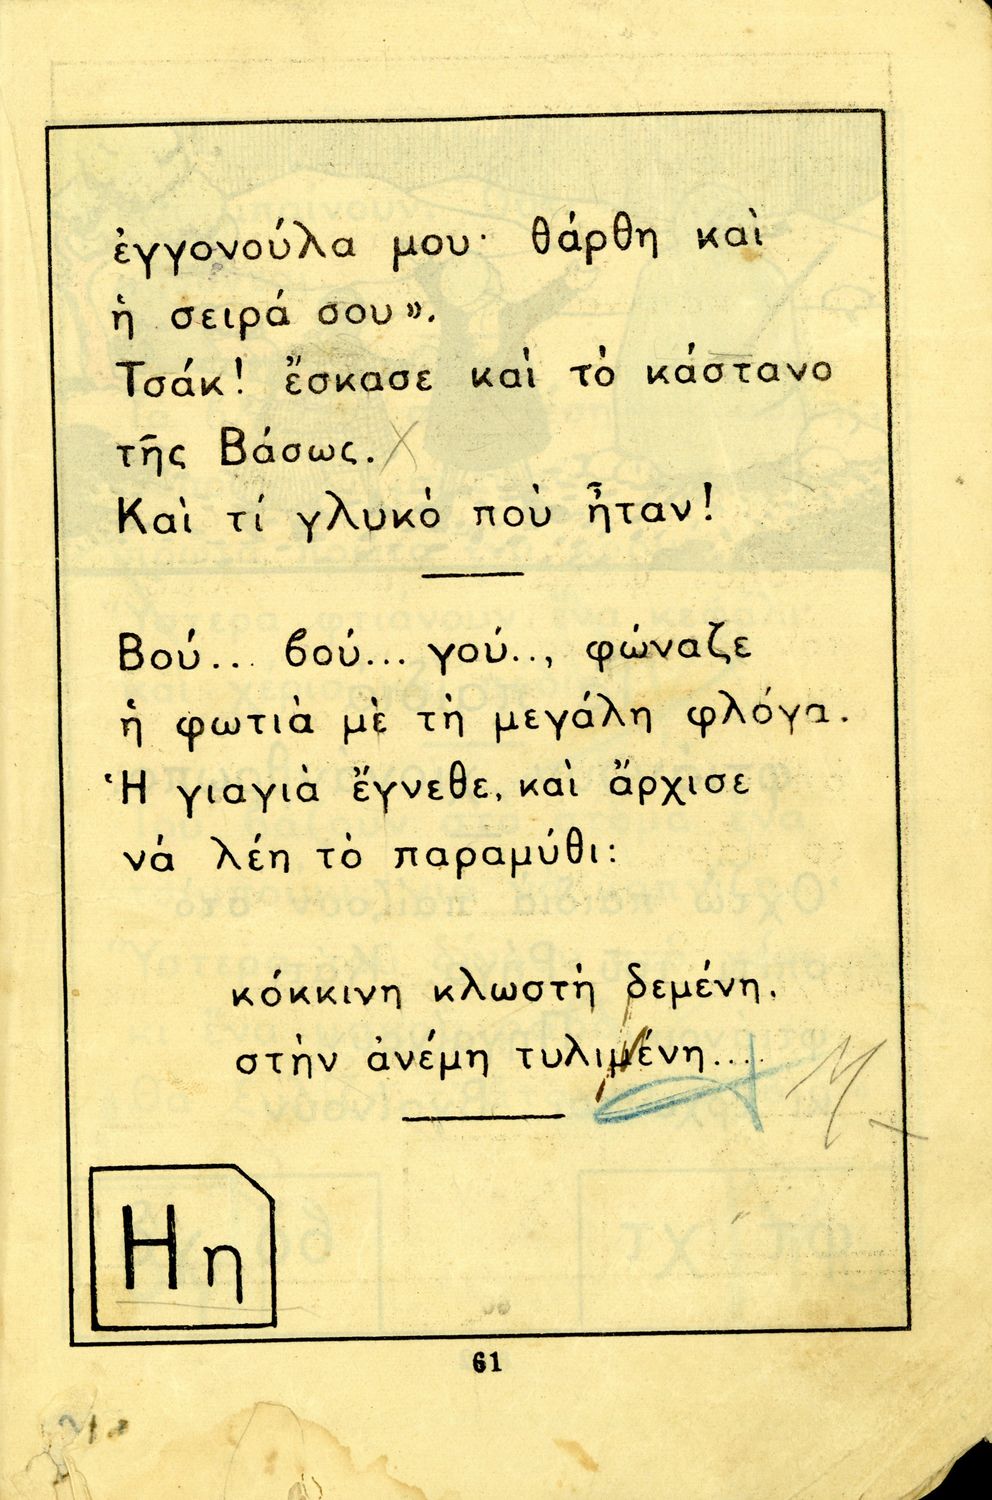 ἐγγονούλα μου· θάρθη καὶ
ἡ σειρά σου».
Τσάκ! ἔσκασε καὶ τὸ κάστανο
τῆς Βάσως.
Καὶ τί γλυκὸ ποὺ ἦταν!
Βού... βού... γού.., φώναζε
ἡ φωτιὰ μὲ τὴ μεγάλη φλόγα.
Ἡ γιαγιὰ ἔγνεθε, καὶ ἄρχισε
νά λέη τὸ παραμύθι:
κόκκινη κλωστὴ δεμένη,
στὴν ἀνέμη τυλιμένη....
Η η
61